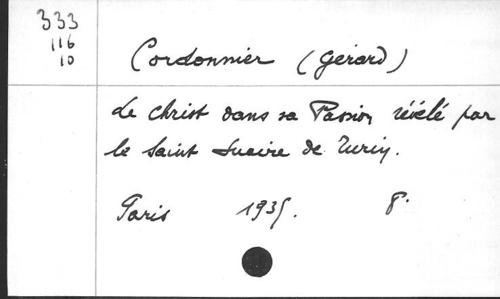 333
116
10
Cordonnier (Gérard)
Le Christ dans sa Passion révélé par
le Saint Suaire de Turin.
Paris 1935. 8°.